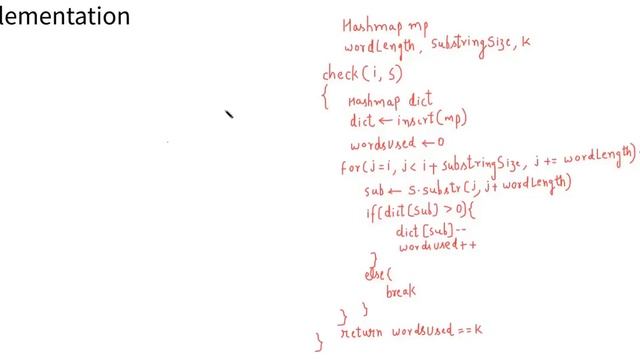 lementation
Hashmap mp
wordLength, SubstringSize, K
check(i, s)
{
Hashmap dict
dict ← insert(mp)
wordsUsed ← 0
for(j=i, j< i+ substringSize, j += wordLength)
sub ← s.substr(j, j+ wordLength)
if(dict[sub] > 0){
dict[sub]--
wordsused++
}
else{
break
}
}
return wordsUsed ==K
}